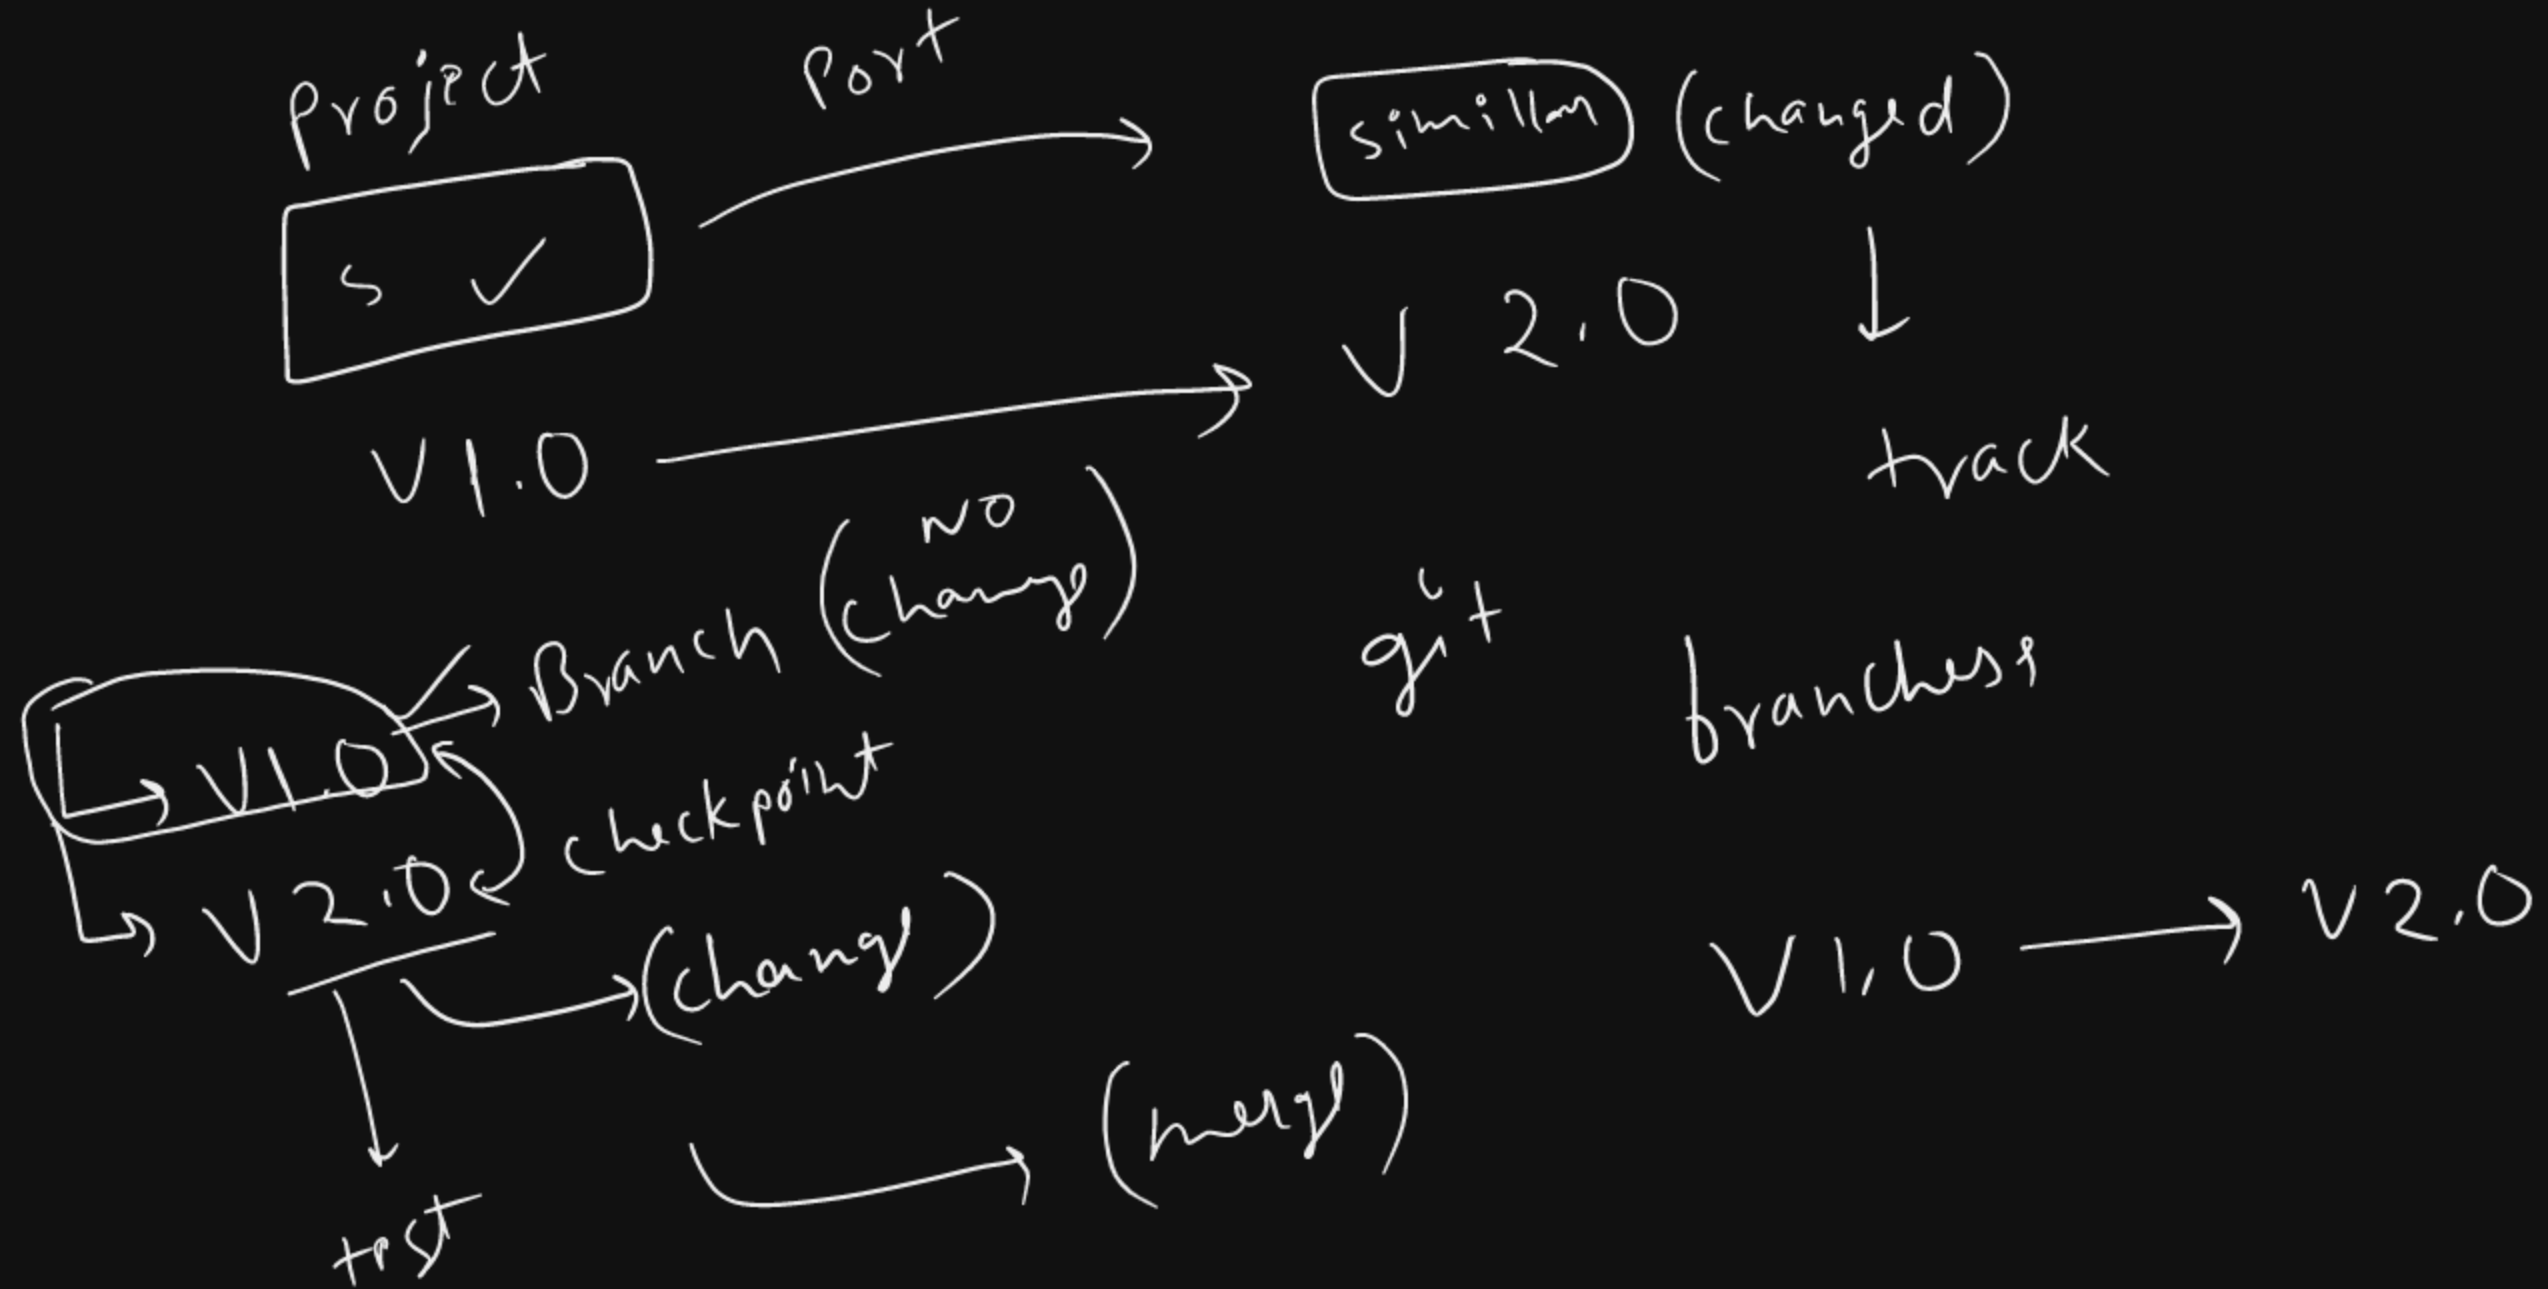 Project
Port
simillar (changed)
S ✓
V 2.0
V1.0
track
NO
(change)
git
Branch
branches,
V1.0
checkpoint
V 2.0
(change)
V1.0 → V2.0
(merge)
test